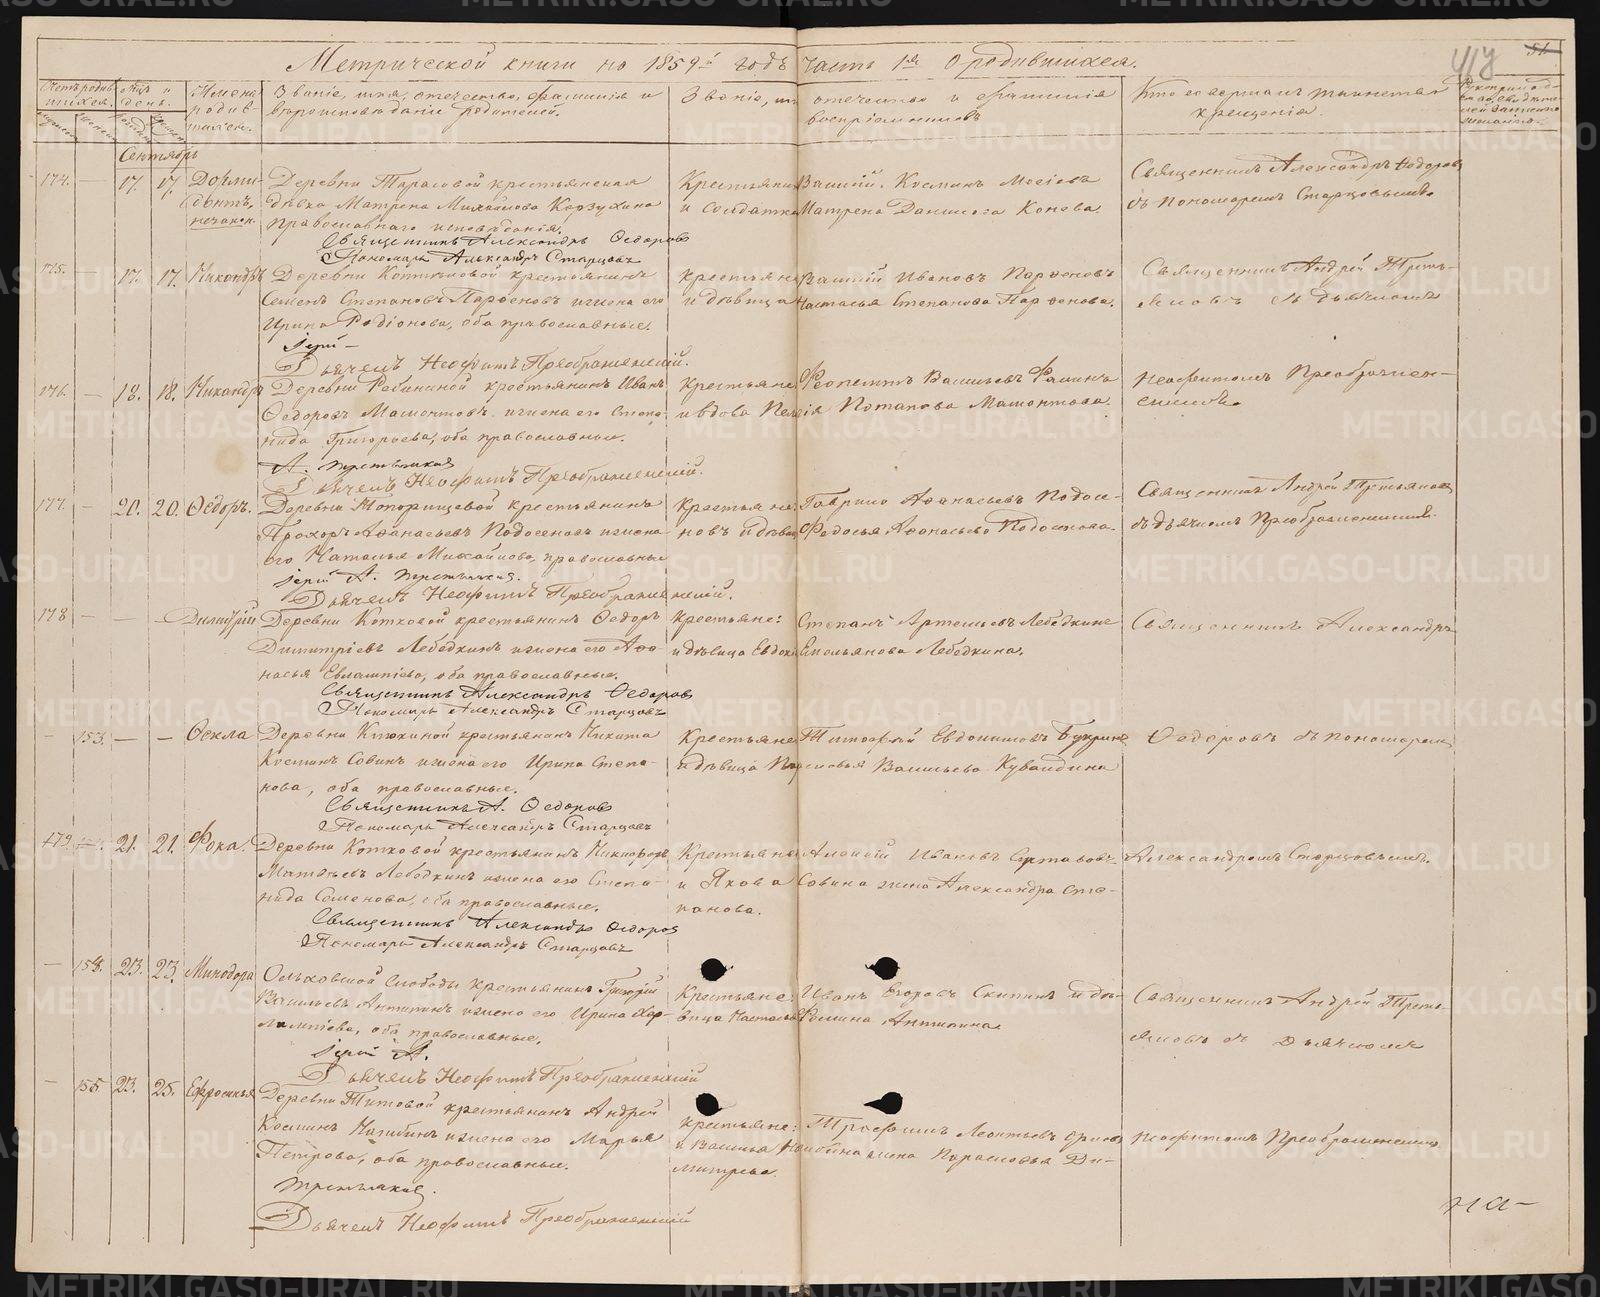 Метрической книги на 1859й годъ часть 1я О родившихся.
Мѣсяцъ и день.
Имена родившихся.
Званіе, имя, отечество, фамилія и
вѣроисповѣданіе родителей.
Званіе, имя, отечество и фамилія
воспріемниковъ
Кто совершалъ таинство
крещенія.
Сентябрь
174. — 17. 17.
Деревни Тарасовой крестьянская
дѣвка Матрена Михайлова Корзухина
православнаго исповѣданія.
Священникъ Александръ Ѳедоровъ
Пономарь Александръ Старцовъ
Крестьянинъ Василій Косминъ
и солдатка Матрена Данилова Конева.
Священникъ Александръ Ѳедоровъ
съ пономаремъ Старцовымъ.
175. — 17. 17. Никандръ
Деревни крестьянинъ
Семенъ Степановъ Парѳеновъ и жена его
Ирина Родіонова, оба православные.
Іерей —
Дьячекъ Неофитъ Преображенскій.
Крестьяне Василій Ивановъ Парѳеновъ
и дѣвица Настасья Степанова Парѳенова.
Священникъ Андрей Треть-
яковъ съ дьячкомъ
176. — 18. 18. Никандръ
Деревни Рябининой крестьянинъ Иванъ
Ѳедоровъ Мамонтовъ и жена его Степа-
нида Григорьева, оба православные.
А. Третьяковъ
Дьячекъ Неофитъ Преображенскій.
Крестьяне Васильевъ
и вдова Пелагія Потапова Мамонтова.
Неофитомъ Преображен-
скимъ.
177. — 20. 20. Ѳедоръ.
Деревни Топорищевой крестьянинъ
Прохоръ Аѳанасьевъ Подосеновъ и жена
его Наталья Михайлова, православные
Іерей А. Третьяковъ.
Дьячекъ Неофитъ Преображенскій.
Крестьяне Гаврило Аѳанасьевъ Подосе-
новъ и дѣвица Ѳедосья Аѳанасьева Подосенова.
Священникъ Андрей Третьяковъ
съ дьячкомъ Преображенскимъ.
178 — — — Димитрій
Деревни Котковой крестьянинъ Ѳедоръ
Димитріевъ Лебедкинъ и жена его Аѳа-
насья Евлампіева, оба православные.
Священникъ Александръ Ѳедоровъ
Пономарь Александръ Старцовъ
Крестьяне: Степанъ Артемьевъ Лебедкинъ
и дѣвица Евдокія Емельянова Лебедкина.
Священникъ Александръ
— 153. — — Ѳекла
Деревни крестьянинъ Никита
Косминъ Совинъ и жена его Ирина Степа-
нова, оба православные.
Священникъ А. Ѳедоровъ
Пономарь Александръ Старцовъ
Крестьяне Тимофей Евдокимовъ
и дѣвица Парасковья Васильева Кувалдина
Ѳедоровъ съ пономаремъ
179. 21. 21. Фока.
Деревни Котковой крестьянинъ Никифоръ
Матвѣевъ Лебедкинъ и жена его Степа-
нида Семенова, оба православные.
Священникъ Александръ Ѳедоровъ
Пономарь Александръ Старцовъ
Крестьяне Алексѣй Ивановъ
и Якова Совина жена Александра Сте-
панова.
Александромъ Старцовымъ.
— 154. 23. 23. Минодора
Ольховской слободы крестьянинъ Григорій
Васильевъ Антипинъ и жена его Ирина Хар-
лампіева, оба православные.
Іерей А.
Дьячекъ Неофитъ Преображенскій
Крестьяне: Иванъ Егоровъ Скипинъ и дѣ-
вица Настасья Фомина Антипина.
Священникъ Андрей Треть-
яковъ съ дьячкомъ
— 155. 23. 25. Ефросинья
Деревни Титовой крестьянинъ Андрей
Косминъ и жена его Марья
Петрова, оба православные.
Третьяковъ.
Дьячекъ Неофитъ Преображенскій
Крестьяне: Трофимъ Леонтьевъ
и Василья жена Парасковья Ди-
митрева.
Неофитомъ Преображенскимъ
на-
METRIKI.GASO-URAL.RU